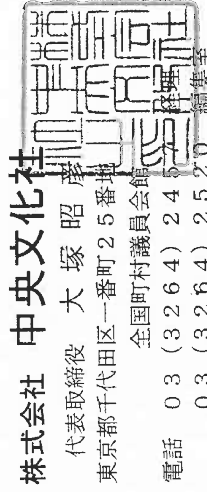 株式会社 中央文化社
代表取締役 大塚昭彦
東京都千代田区一番町25番地
全国町村議員会館
電話 03(3264)245 経理
03(3264)2520 編集室